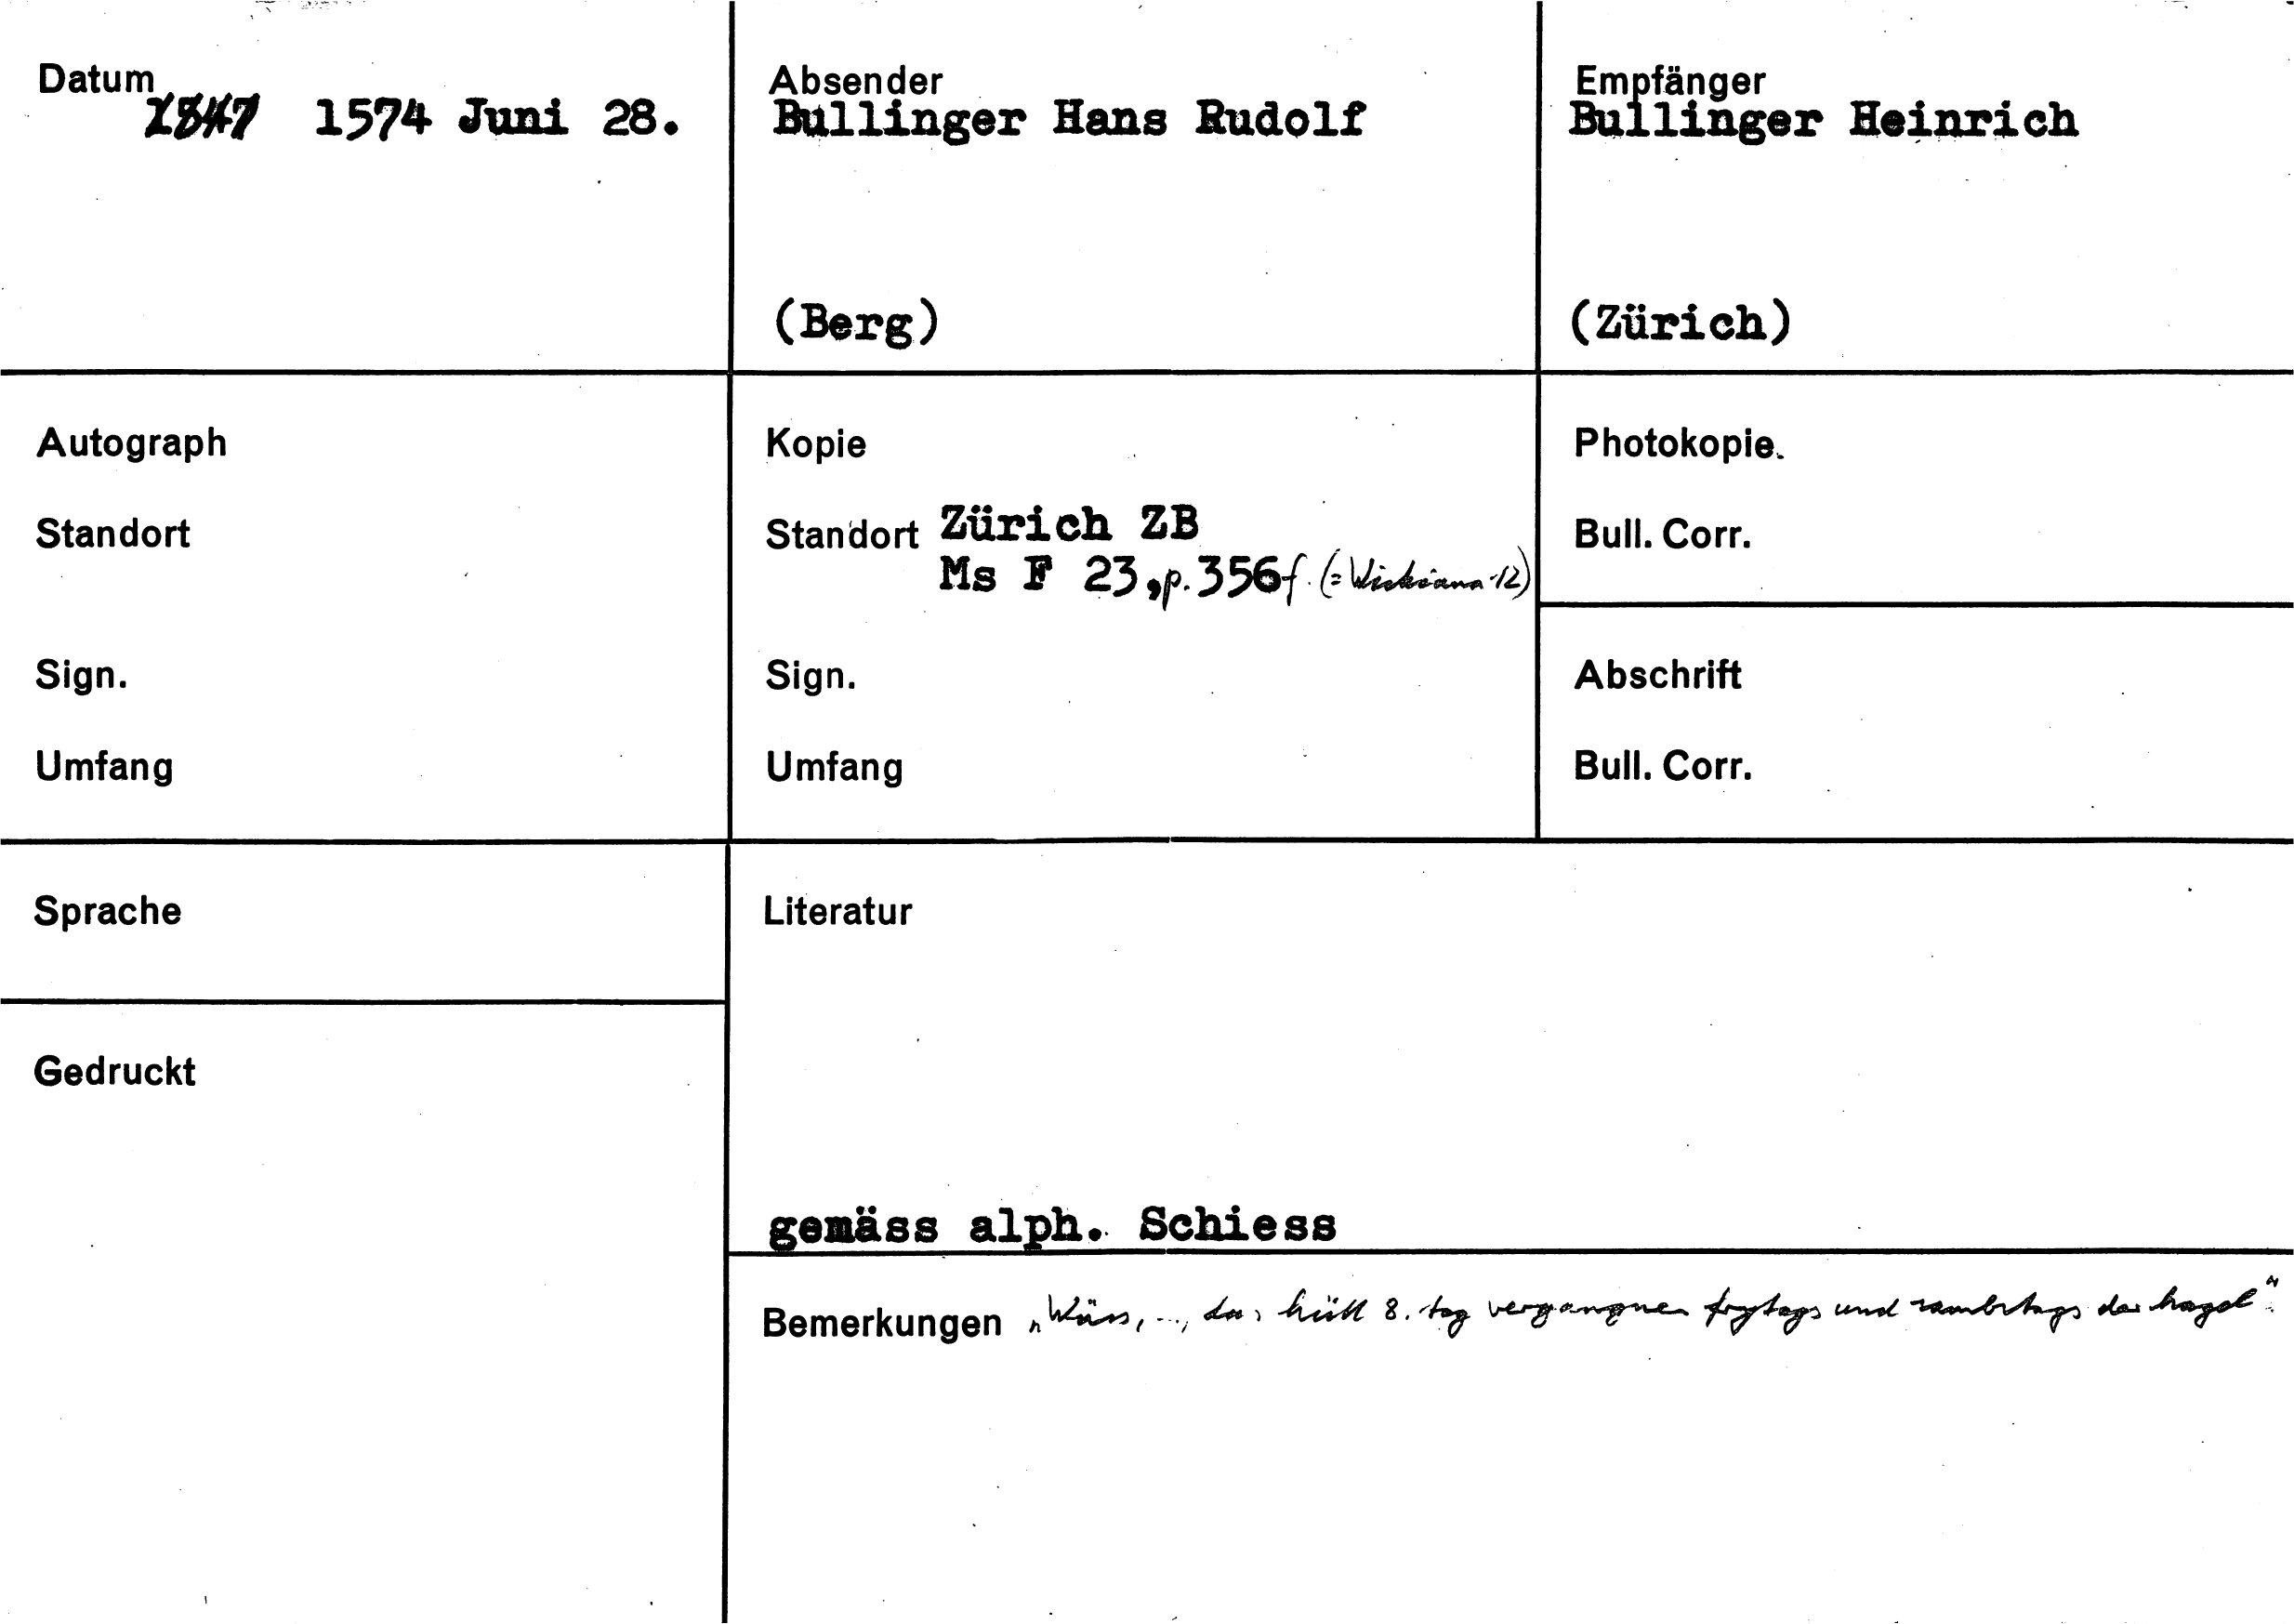 Datum
1547 1574 Juni 28.
Absender
Bullinger Hans Rudolf
(Berg)
Empfänger
Bullinger Heinrich
(Zürich)
Autograph
Standort
Sign.
Umfang
Kopie
Standort Zürich ZB
Ms F 23, p. 356f. (= Wickiana 12)
Sign.
Umfang
Photokopie
Bull. Corr.
Abschrift
Bull. Corr.
Sprache
Gedruckt
Literatur
gemäss alph. Schiess
Bemerkungen „Wüss, ..., das hütt 8. tag vergangnen frytags und sambstags der hagel".